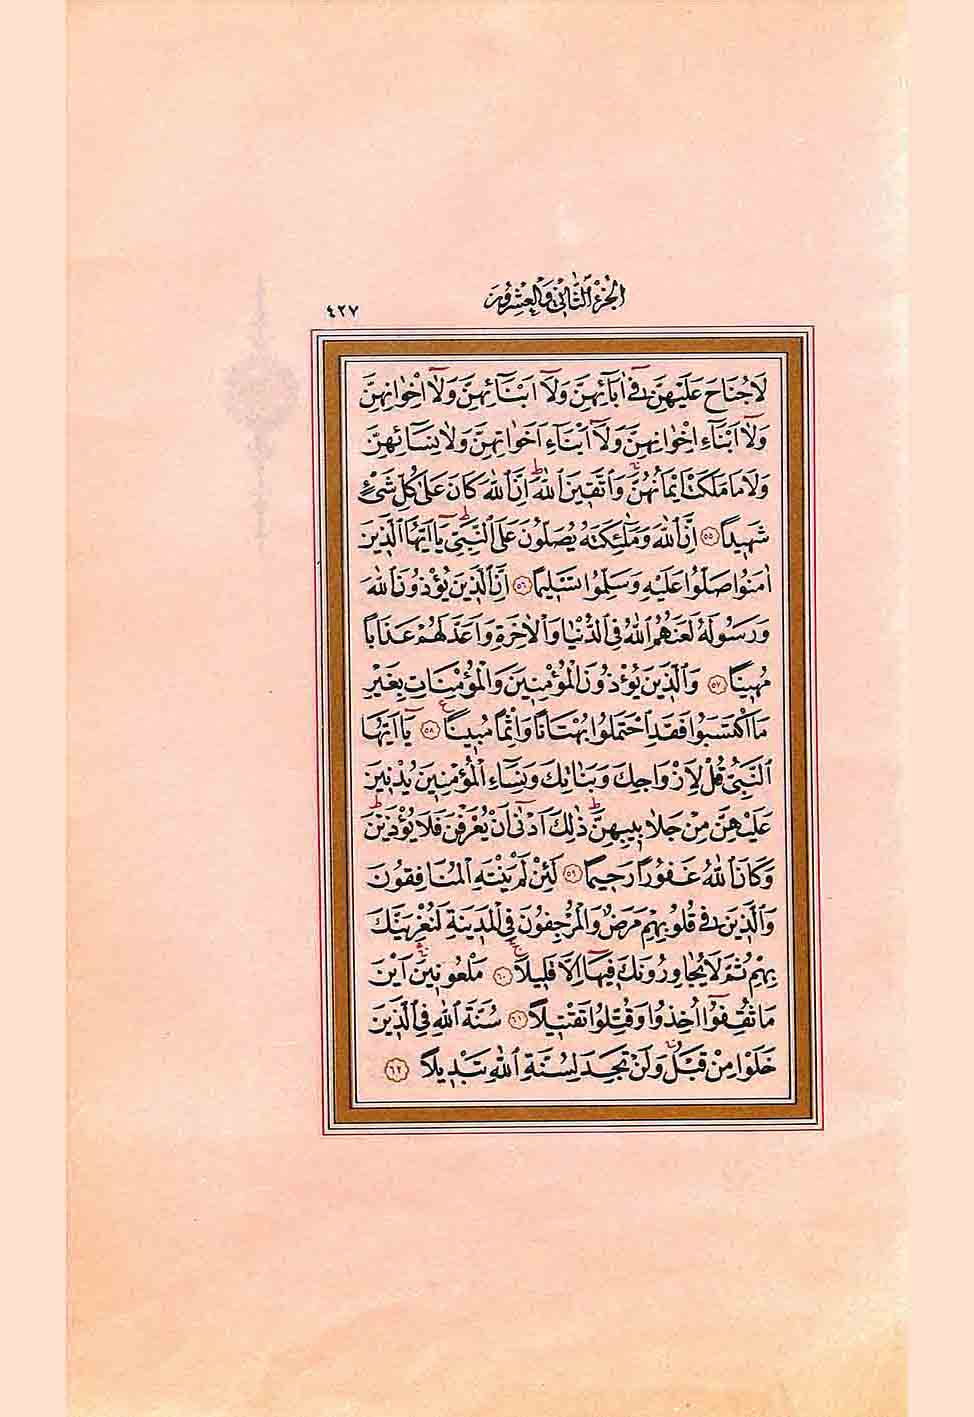 الجزء الثاني والعشرون
٤٢٧
لَا جُنَاحَ عَلَيْهِنَّ فِٓي اٰبَٓائِهِنَّ وَلَٓا اَبْنَٓائِهِنَّ وَلَٓا اِخْوَانِهِنَّ
وَلَٓا اَبْنَٓاءِ اِخْوَانِهِنَّ وَلَٓا اَبْنَٓاءِ اَخَوَاتِهِنَّ وَلَا نِسَٓائِهِنَّ
وَلَا مَا مَلَكَتْ اَيْمَانُهُنَّۚ وَاتَّق۪ينَ اللّٰهَۜ اِنَّ اللّٰهَ كَانَ عَلٰى كُلِّ شَيْءٍ
شَه۪يدًا ﴿٥٥﴾ اِنَّ اللّٰهَ وَمَلٰٓئِكَتَهُ يُصَلُّونَ عَلَى النَّبِيِّۜ يَٓا اَيُّهَا الَّذ۪ينَ
اٰمَنُوا صَلُّوا عَلَيْهِ وَسَلِّمُوا تَسْل۪يمًا ﴿٥٦﴾ اِنَّ الَّذ۪ينَ يُؤْذُونَ اللّٰهَ
وَرَسُولَهُ لَعَنَهُمُ اللّٰهُ فِي الدُّنْيَا وَالْاٰخِرَةِ وَاَعَدَّ لَهُمْ عَذَابًا
مُه۪ينًا ﴿٥٧﴾ وَالَّذ۪ينَ يُؤْذُونَ الْمُؤْمِن۪ينَ وَالْمُؤْمِنَاتِ بِغَيْرِ
مَا اكْتَسَبُوا فَقَدِ احْتَمَلُوا بُهْتَانًا وَاِثْمًا مُب۪ينًا۟ ﴿٥٨﴾ يَٓا اَيُّهَا
النَّبِيُّ قُلْ لِاَزْوَاجِكَ وَبَنَاتِكَ وَنِسَٓاءِ الْمُؤْمِن۪ينَ يُدْن۪ينَ
عَلَيْهِنَّ مِنْ جَلَاب۪يبِهِنَّۜ ذٰلِكَ اَدْنٰٓى اَنْ يُعْرَفْنَ فَلَا يُؤْذَيْنَۜ
وَكَانَ اللّٰهُ غَفُورًا رَح۪يمًا ﴿٥٩﴾ لَئِنْ لَمْ يَنْتَهِ الْمُنَافِقُونَ
وَالَّذ۪ينَ ف۪ي قُلُوبِهِمْ مَرَضٌ وَالْمُرْجِفُونَ فِي الْمَد۪ينَةِ لَنُغْرِيَنَّكَ
بِهِمْ ثُمَّ لَا يُجَاوِرُونَكَ ف۪يهَٓا اِلَّا قَل۪يلًاۚ ﴿٦٠﴾ مَلْعُون۪ينَۚ اَيْنَ
مَا ثُقِفُٓوا اُخِذُوا وَقُتِّلُوا تَقْت۪يلًا ﴿٦١﴾ سُنَّةَ اللّٰهِ فِي الَّذ۪ينَ
خَلَوْا مِنْ قَبْلُۚ وَلَنْ تَجِدَ لِسُنَّةِ اللّٰهِ تَبْد۪يلًا ﴿٦٢﴾